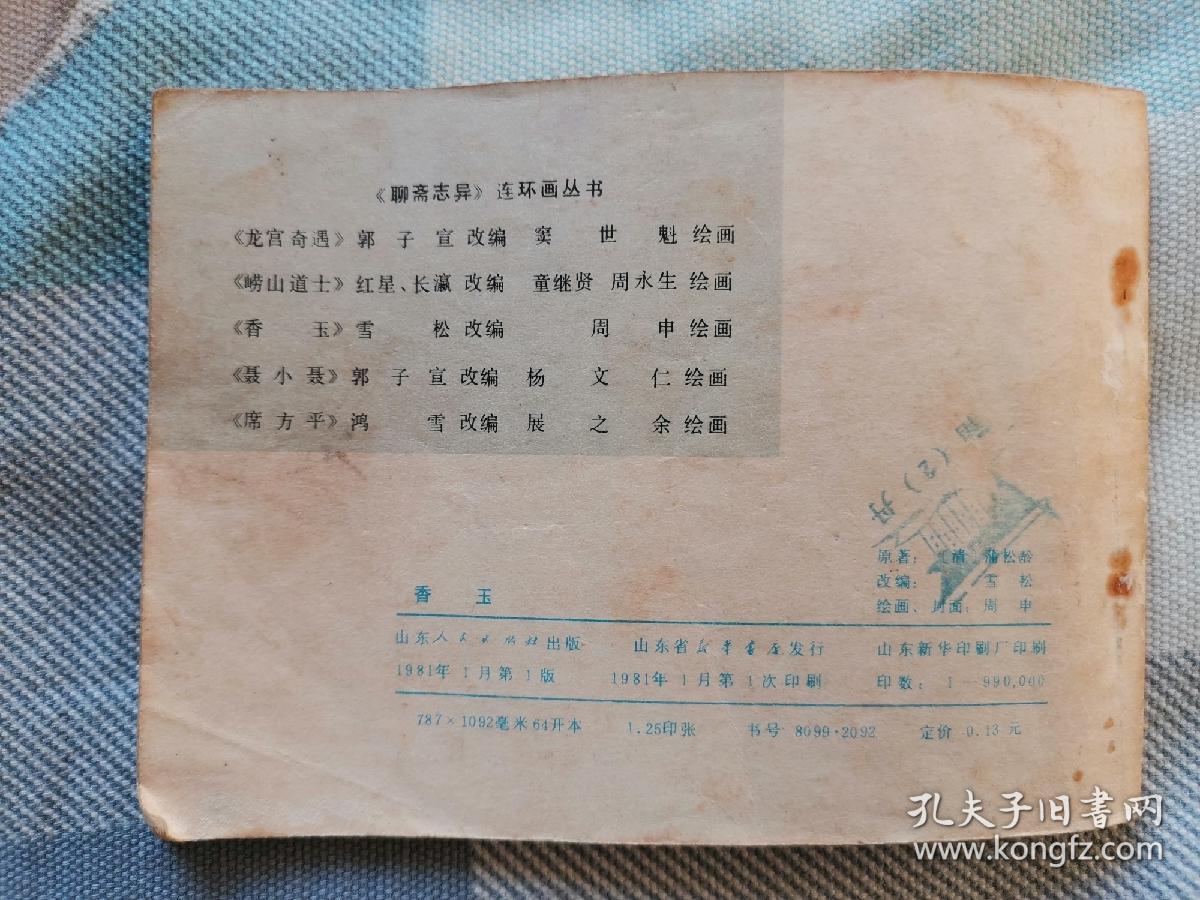 《聊斋志异》连环画丛书
《龙宫奇遇》郭子宣改编 窦世魁绘画
《崂山道士》红星、长瀛改编 童继贤 周永生绘画
《香玉》雪松改编 周申绘画
《聂小聂》郭子宣改编 杨文仁绘画
《席方平》鸿雪改编 展之余绘画
(2)丹
原著:〔清〕蒲松龄
改编: 雪松
绘画、封面:周申
香玉
山东人民出版社出版 山东省新华书店发行 山东新华印刷厂印刷
1981年1月第1版 1981年1月第1次印刷 印数:1—990,000
787×1092毫米64开本 1.25印张 书号 8099·2092 定价 0.13元
孔夫子旧书网
www.kongfz.com